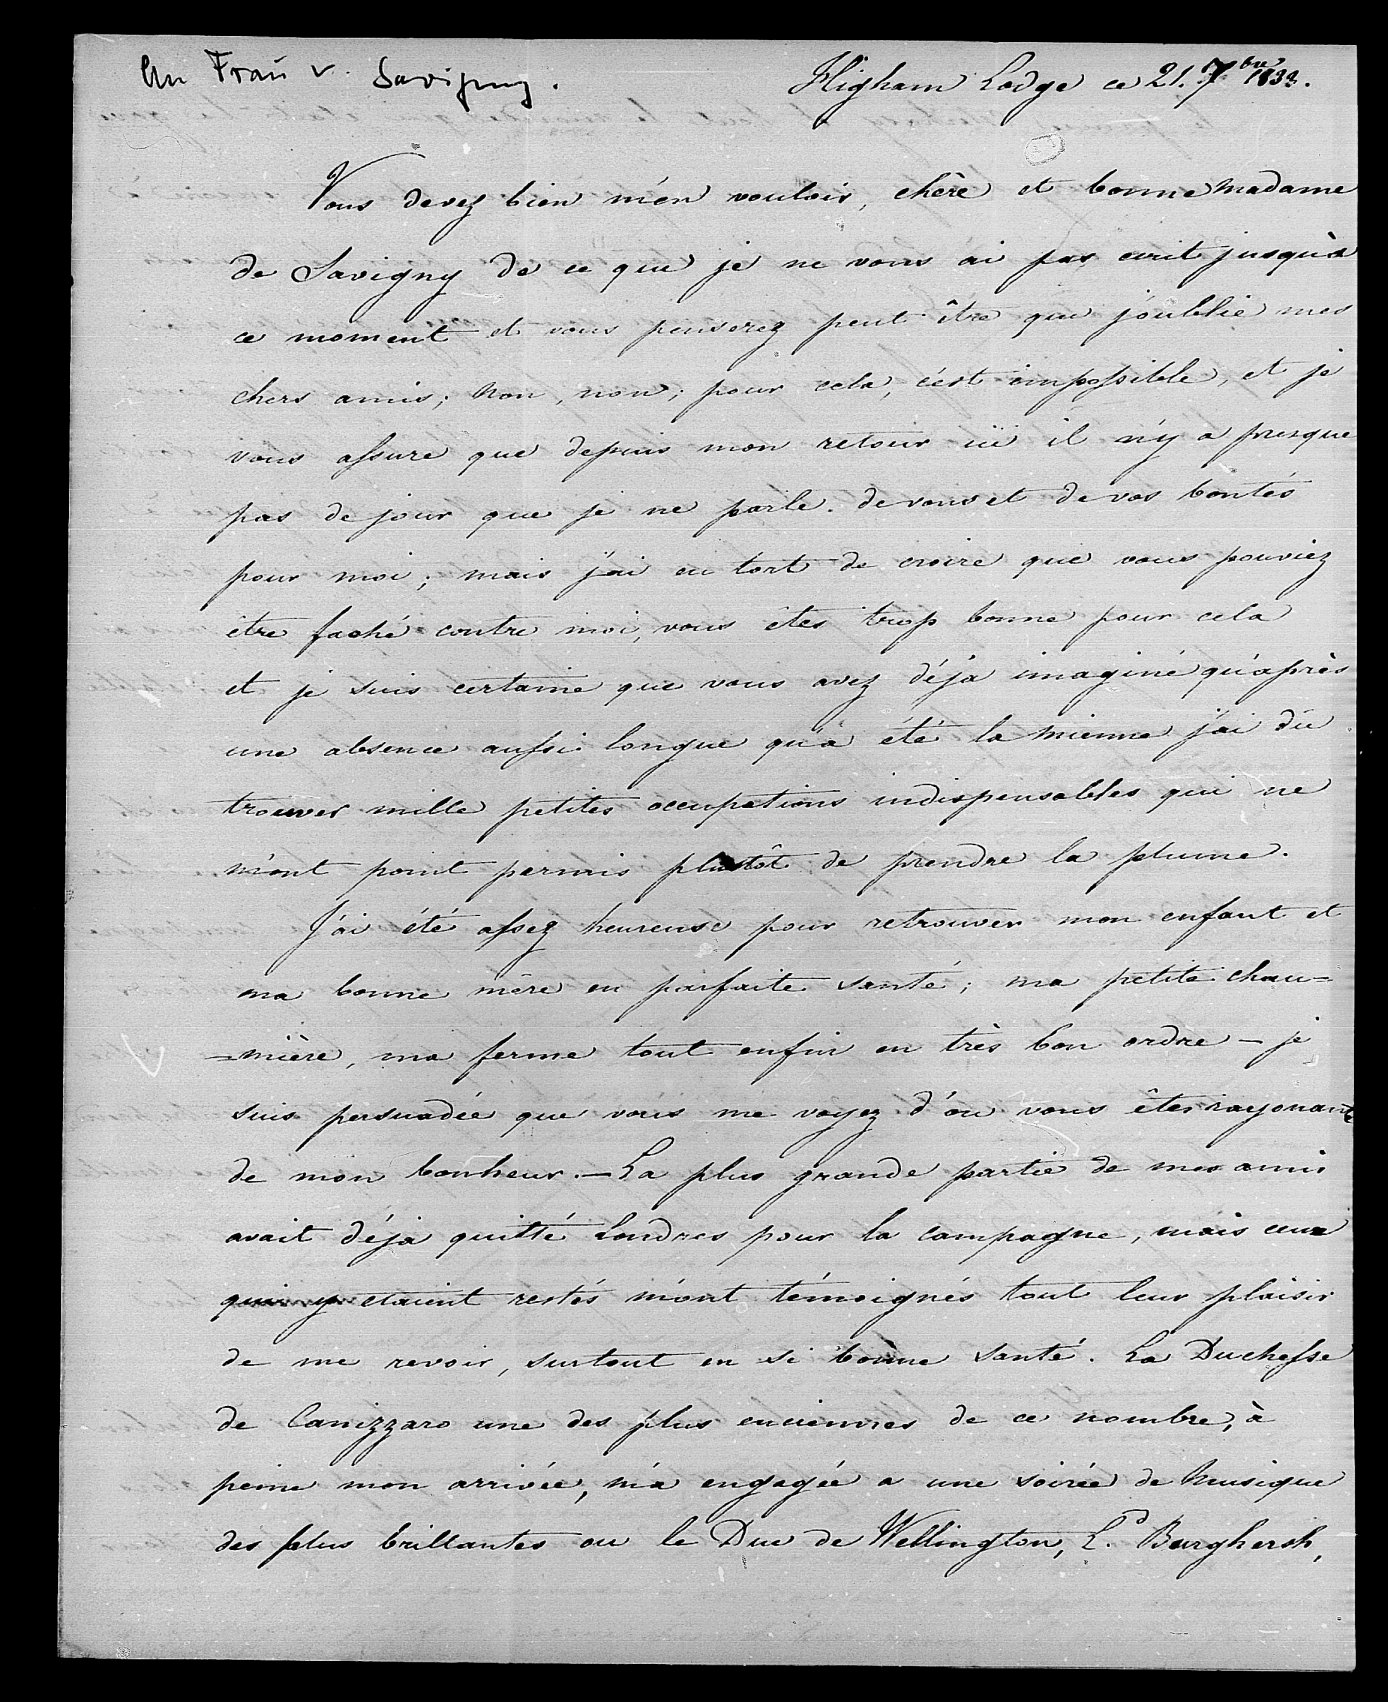 An Frau v. Savigny.
Higham Lodge ce 21. 7bre 1833.
Vous devez bien m'en vouloir, chère et bonne Madame
de Savigny de ce que je ne vous ai pas ecrit jusqu'à
ce moment et vous penserez peut être que j'oublie mes
chers amis; non, non; pour cela, c'est impossible, et je
vous assure que depuis mon retour ici il n'y a presque
pas de jour que je ne parle de vous et de vos bontés
pour moi; mais j'ai eu tort de croire que vous pouviez
être faché contre moi, vous êtes trop bonne pour cela
et je suis certaine que vous avez déja imaginé qu'après
une absence aussi longue qu'a été la mienne j'ai dû
trouver mille petites occupations indispensables qui ne
m'ont point permis plustôt de prendre la plume.
J'ai été assez heureuse pour retrouver mon enfant et
ma bonne mère en parfaite santé; ma petite chau=
=mière, ma ferme tout enfin en très bon ordre – je
suis persuadée que vous me voyez d'ou vous êtes rayonante
de mon bonheur. – La plus grande partie de mes amis
avait déja quitté Londres pour la campagne, mais ceux
qui y etaient restés m'ont témoignés tout leur plaisir
de me revoir, surtout en si bonne santé. La Duchesse
de Canizzaro une des plus enciennes de ce nombre, à
peine mon arrivée, m'a engagée a une soirée de Musique
des plus brillantes ou le Duc de Wellington, Ld. Burghersh,